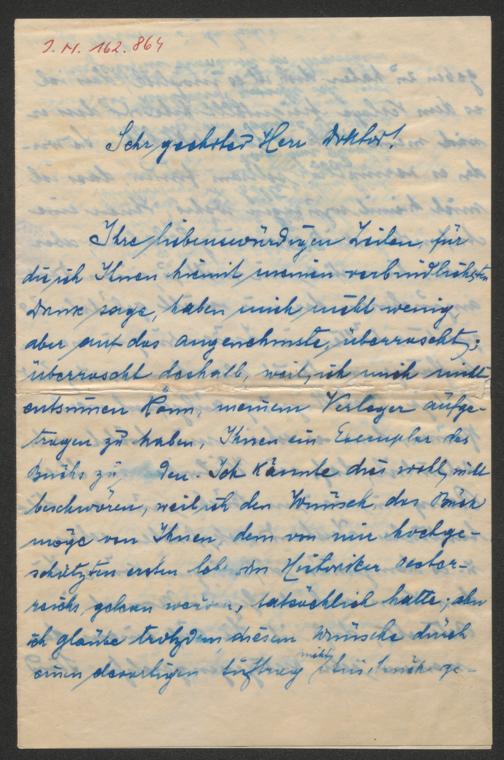 J. N. 162.864
Sehr geehrter Herr Doktor!
Ihre liebenswürdigen Zeilen, für
die ich Ihnen hiemit meinen verbindlichsten
Dank sage, haben mich nicht wenig
aber auf das angenehmste überrascht;
überrascht deshalb, weil ich mich nicht
entsinnen kann, meinem Verleger aufge-
tragen zu haben, Ihnen ein Exemplar des
Buchs zu den. Ich könnte dies wohl nicht
beschwören, weil ich den Wunsch, das Buch
möge von Ihnen, dem von mir hochge-
schätzten ersten leb den Historiker Oester-
reichs, gelesen werden, tatsächlich hatte; aber
ich glaube trotzdem diesem Wunsche durch
einen derartigen Auftrag nicht Ausdruck ge-